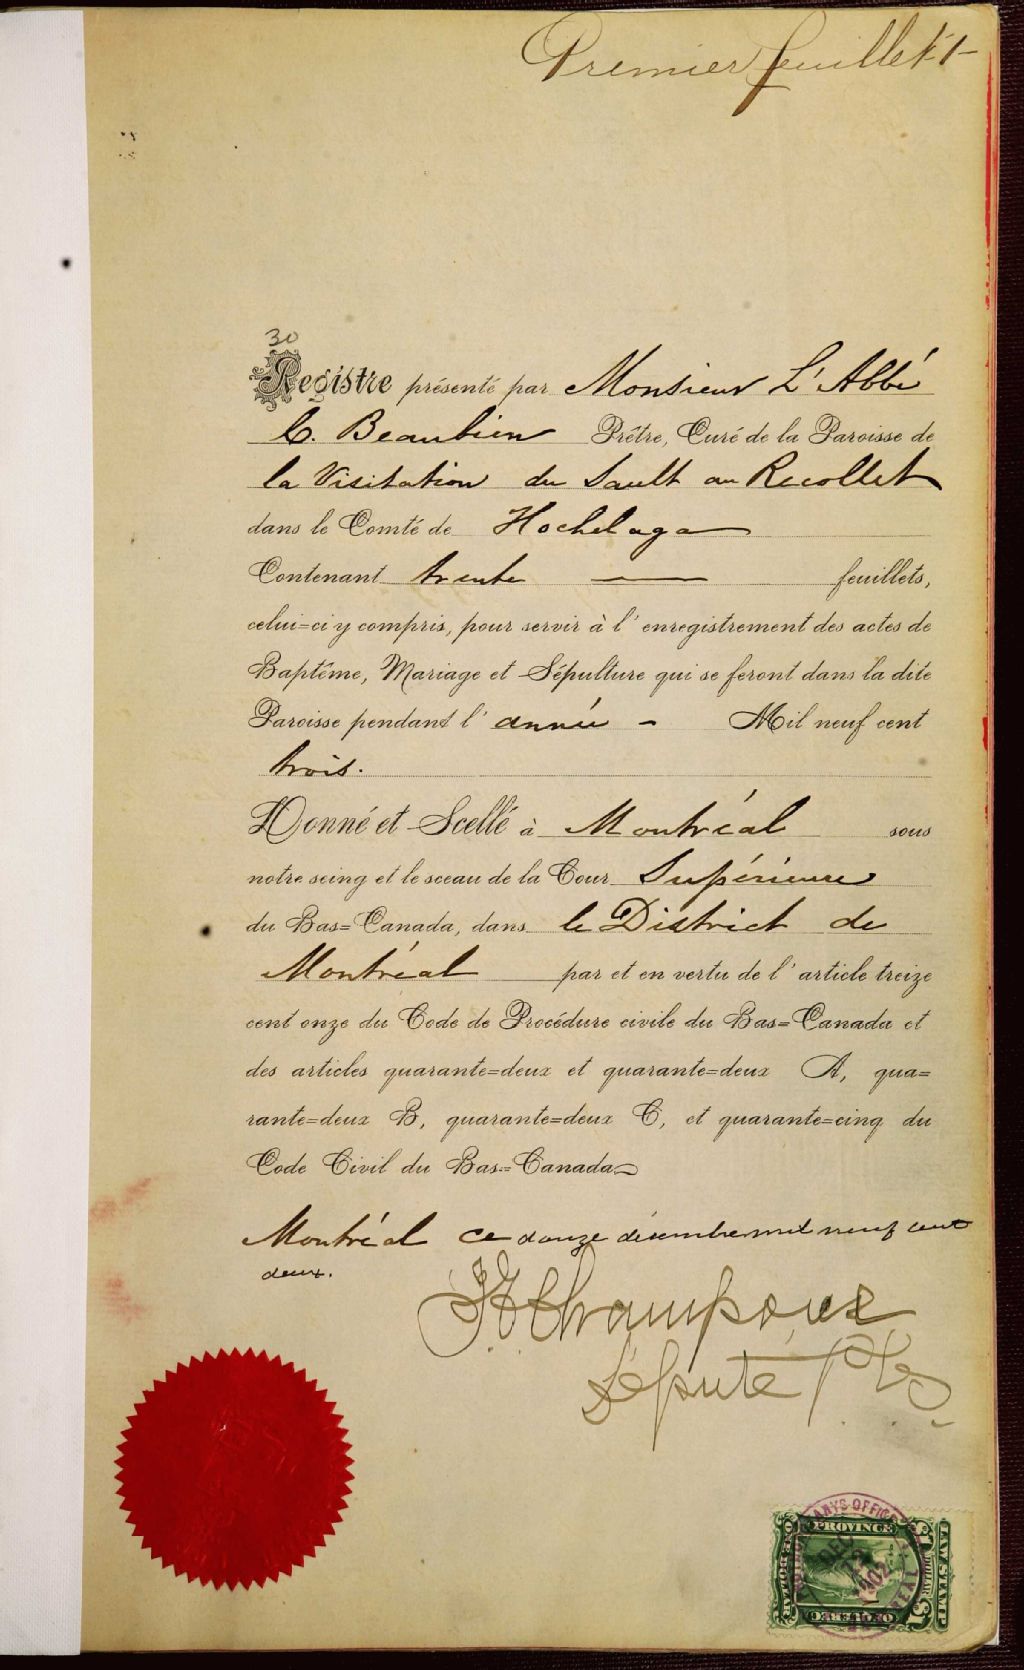 Premier feuillet 1-
30
Registre présenté par Monsieur L'Abbé
C. Beaubien Prêtre, Curé de la Paroisse de
la Visitation du Sault au Recollet
dans le Comté de Hochelaga
Contenant trente — feuillets,
celui=ci y compris, pour servir à l'enregistrement des actes de
Baptême, Mariage et Sépulture qui se feront dans la dite
Paroisse pendant l'année - Mil neuf cent
trois.
Donné et Scellé à Montréal sous
notre seing et le sceau de la Cour Supérieure
du Bas=Canada, dans le District de
Montréal par et en vertu de l'article treize
cent onze du Code de Procédure civile du Bas=Canada et
des articles quarante=deux et quarante=deux A, qua=
rante=deux B, quarante=deux C, et quarante=cinq du
Code Civil du Bas=Canada
Montréal ce douze décembre mil neuf cent
deux.
Champoux
Député P.C.S.
PROVINCE
QUEBEC
LAW STAMP
ONE DOLLAR
DEC
12
1902